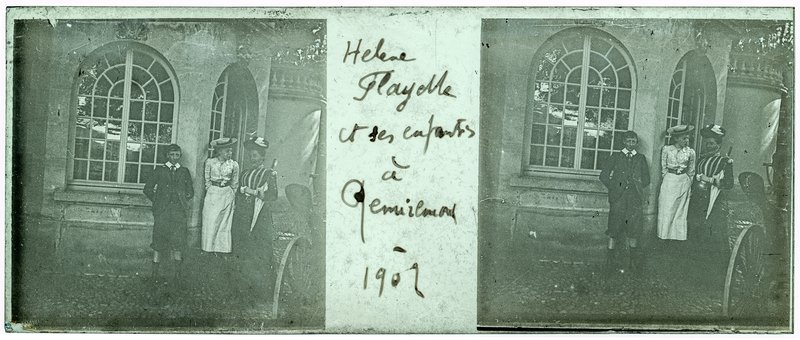 Helene
Flayelle
et ses enfants
à
Remiremont
1902